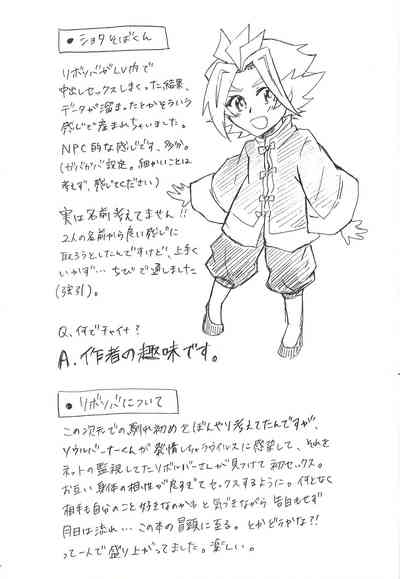 ● ショタそばくん
リボツバがLV内で
中出しセックスしまくった結果、
データが溜まったとかそういう
感じで産まれちゃいました。
NPC的な感じです、多分。
(ガバガバ設定。細かいことは
考えず、感じてください)
実は名前考えてません!!
2人の名前から良い感じに
取ろうとしたんですけど、上手く
いかず…ちびで通しました
(強引)。
Q.何でチャイナ?
A.作者の趣味です。
● リボツバについて
この次元での馴れ初めをぼんやり考えてたんですが、
ソウルバーナーくんが発情しちゃうウイルスに感染して、それを
ネットの監視してたリボルバーさんが見つけて初セックス。
お互い身体の相性が良すぎてセックスするように。何となく
相手も自分のこと好きなのかもと気づきながら告白もせず
月日は流れ…この本の冒頭に至る。とかどうかな?!
って一人で盛り上がってました。楽しい。